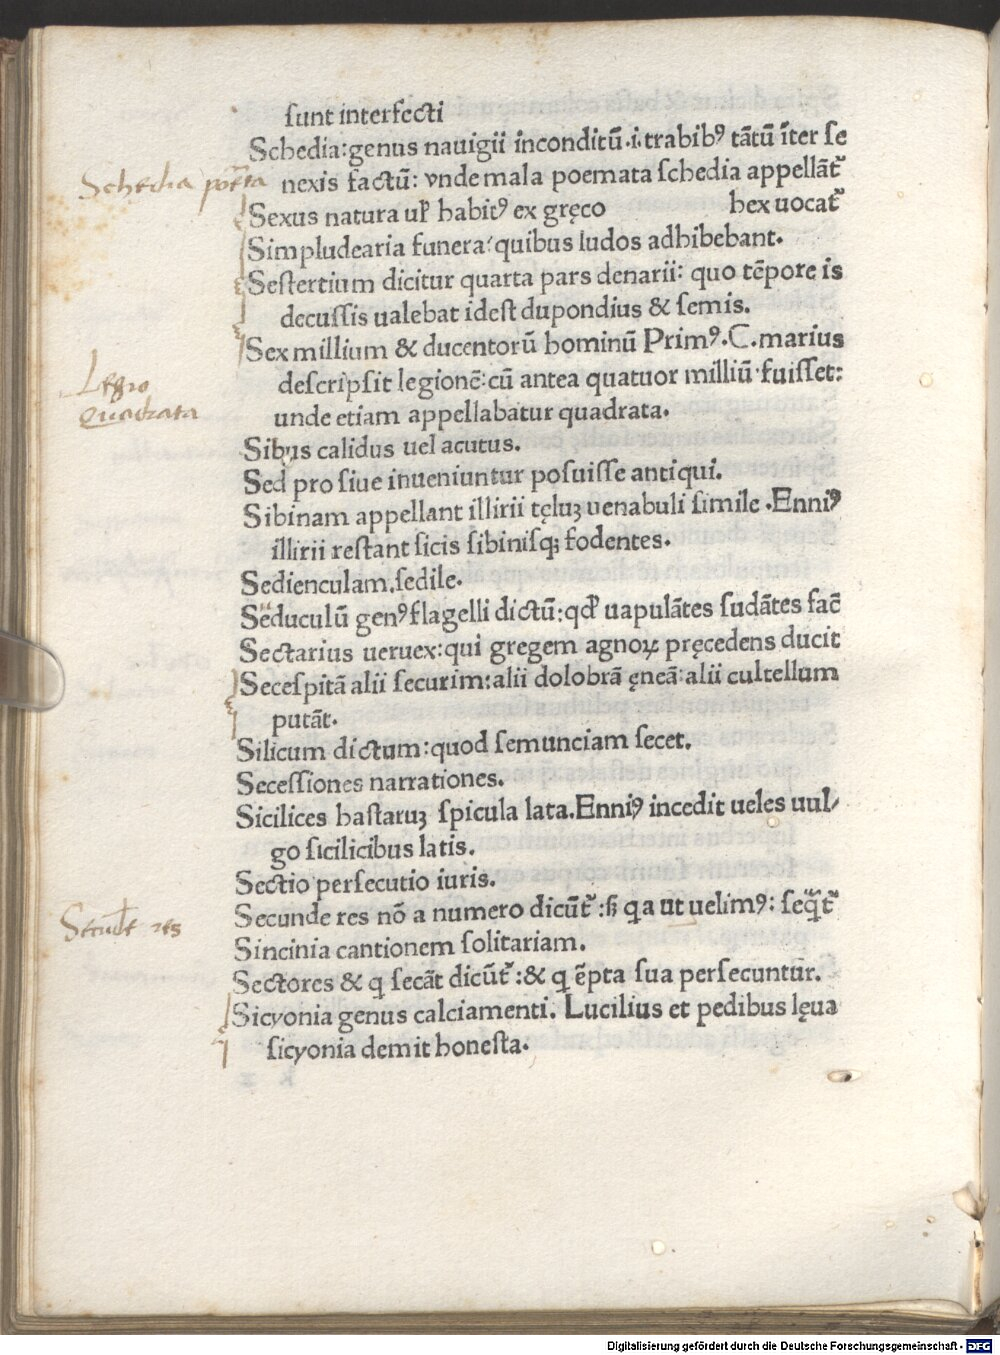 ſunt interfecti
Schedia: genus nauigii inconditū .i. trabibꝰ tātū iter ſe
Schedia poēta
nexis factū: vnde mala poemata ſchedia appellāt᷑
Sexus natura uł habitꝰ ex gręco hex uocat᷑
Simpludearia funera: quibus ludos adhibebant.
Seſtertium dicitur quarta pars denarii: quo tēpore is
decuſſis ualebat ideſt dupondius & ſemis.
Sex millium & ducentorū hominū Primꝰ .C. marius
Legio
deſcripſit legionē: cū antea quatuor milliū fuiſſet:
quadrata
unde etiam appellabatur quadrata.
Sibus calidus uel acutus.
Sed pro ſiue inueniuntur poſuiſſe antiqui.
Sibinam appellant illirii tęluꝫ uenabuli ſimile .Enniꝰ
illirii reſtant ſicis ſibiniſqꝫ fodentes.
Sedienculam. ſedile.
Seduculū genꝰ flagelli dictū: qđ uapulātes ſudātes facē
Sectarius ueruex: qui gregem agnoꝝ pręcedens ducit
Seceſpitā alii ſecurim: alii dolobrā ęneā: alii cultellum
putāt.
Silicum dictum: quod ſemunciam ſecet.
Seceſſiones narrationes.
Sicilices haſtaruꝫ ſpicula lata. Enniꝰ incedit ueles uul/
go ſicilicibus latis.
Sectio perſecutio iuris.
Secūde res
Secunde res nō a numero dicūt᷑: ſꝫ q a ut uelimꝰ: ſeq̄t᷑
Sincinia cantionem ſolitariam.
Sectores & q ſecāt dicūt᷑: & q ēpta ſua perſecuntur.
Sicyonia genus calciamenti. Lucilius et pedibus lęua
ſicyonia demit honeſta.
Digitalisierung gefördert durch die Deutsche Forschungsgemeinschaft - DFG